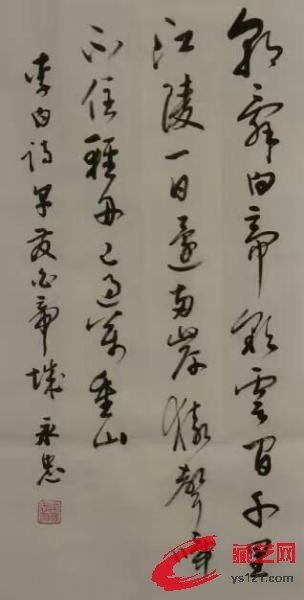 朝辞白帝彩雲间千里
江陵一日還两岸猿聲啼
不住轻舟已过萬重山
李白诗早发白帝城 永忠
藏艺网
ys121.com